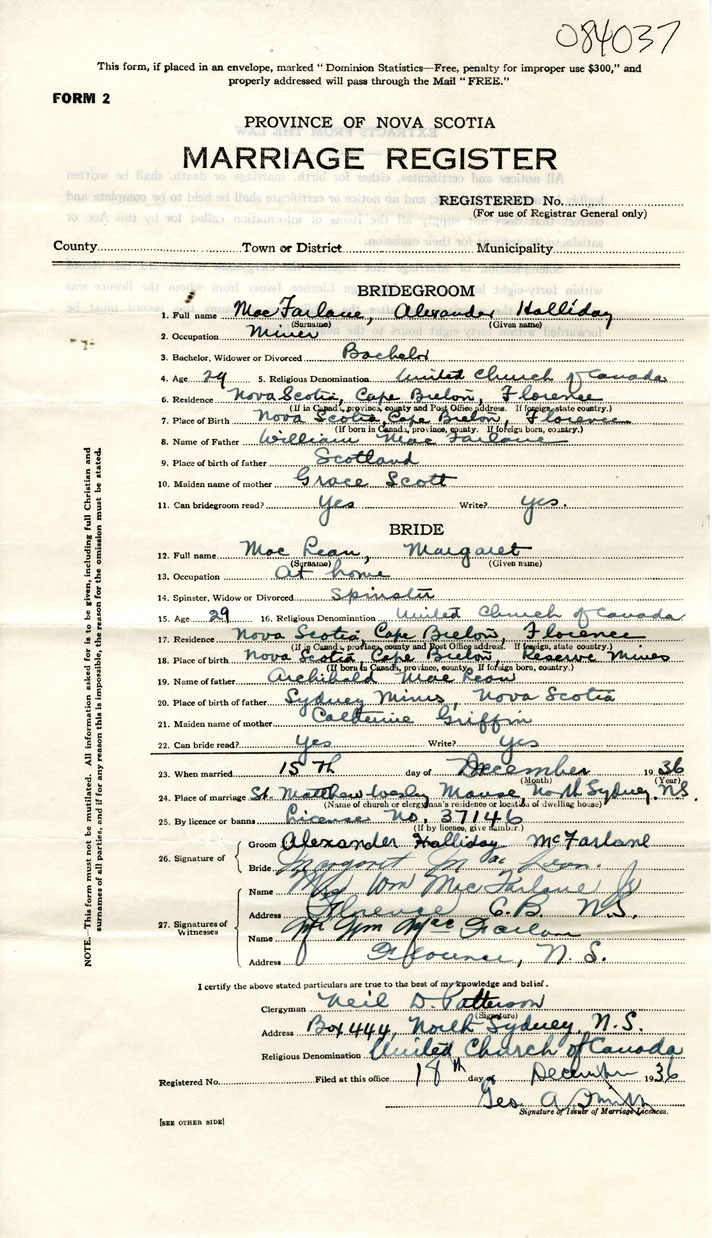 084037
This form, if placed in an envelope, marked "Dominion Statistics—Free, penalty for improper use $300," and
properly addressed will pass through the Mail "FREE."
FORM 2
PROVINCE OF NOVA SCOTIA
MARRIAGE REGISTER
REGISTERED No.
(For use of Registrar General only)
County Town or District Municipality
BRIDEGROOM
1. Full name MacFarlane, Alexander Halliday
(Surname) (Given name)
2. Occupation Miner
3. Bachelor, Widower or Divorced Bachelor
4. Age 29 5. Religious Denomination United Church of Canada
6. Residence Nova Scotia, Cape Breton, Florence
(If in Canada, province, county and Post Office address. If foreign, state country.)
7. Place of Birth Nova Scotia, Cape Breton, Florence
(If born in Canada, province, county. If foreign born, country.)
8. Name of Father William MacFarlane
9. Place of birth of father Scotland
10. Maiden name of mother Grace Scott
11. Can bridegroom read? Yes Write? yes.
BRIDE
12. Full name Mac Lean, Margaret
(Surname) (Given name)
13. Occupation At home
14. Spinster, Widow or Divorced Spinster
15. Age 29 16. Religious Denomination United Church of Canada
17. Residence Nova Scotia, Cape Breton, Florence
(If in Canada, province, county and Post Office address. If foreign, state country.)
18. Place of birth Nova Scotia Cape Breton, Reserve Mines
(If born in Canada, province, county. If foreign born, country.)
19. Name of father Archibald Mac Lean
20. Place of birth of father Sydney Mines, Nova Scotia
21. Maiden name of mother Catherine Griffin
22. Can bride read? Yes Write? Yes
23. When married 15 Th day of December 1936
(Month) (Year)
24. Place of marriage St. Matthew Wesley Manse, North Sydney, N.S.
(Name of church or clergyman's residence or location of dwelling house)
25. By licence or banns License No. 37146
(If by licence, give number.)
26. Signature of
Groom Alexander Halliday McFarlane
Bride Margaret Mac Lean.
27. Signatures of Witnesses
Name Mrs Wm MacFarlane Jr
Address Florence C.B. N.S.
Name Mr Wm MacFarlane
Address Florence, N.S.
I certify the above stated particulars are true to the best of my knowledge and belief.
Clergyman Neil D. Patterson
(Signature)
Address Box 444, North Sydney, N.S.
Religious Denomination United Church of Canada
Registered No. Filed at this office 18th day of December 1936
Geo A Smith
Signature of Issuer of Marriage Licences.
[SEE OTHER SIDE]
NOTE.—This form must not be mutilated. All information asked for is to be given, including full Christian and
surnames of all parties, and if for any reason this is impossible, the reason for the omission must be stated.